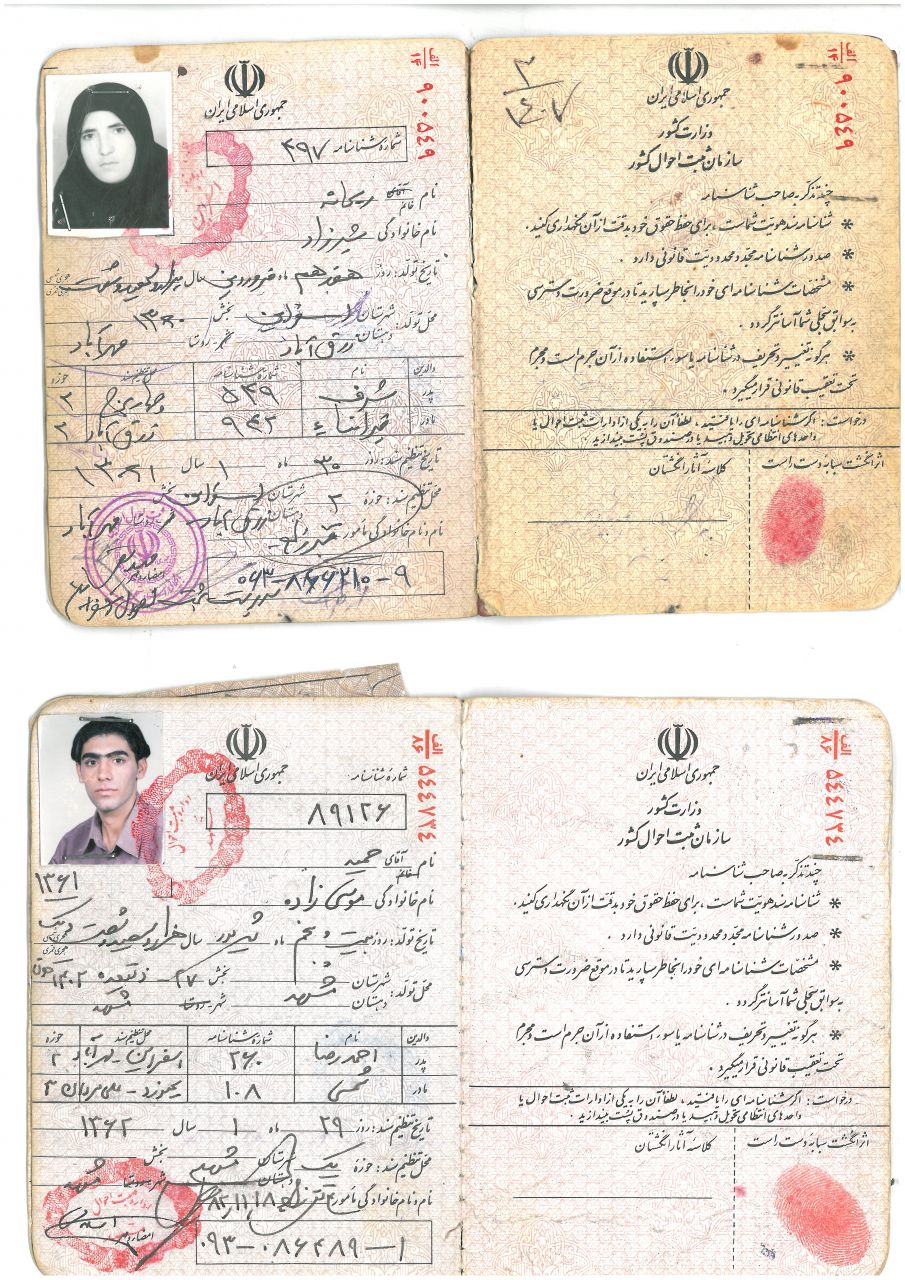 جمهوری اسلامی ایران
الف
۱۴
۹۰۰۵۴۹
شماره شناسنامه ۴۹۷
نام آقای خانم ریحانه
نام خانوادگی شیرزاد
تاریخ تولد: روز هفدهم ماه فروردین سال هزار و سیصد و شصت
۱۳۶۰
محل تولد: شهرستان اسفراین بخش
دهستان زرق آباد شهر-روستا مهرآباد
والدین نام شماره شناسنامه محل تنظیم سند حوزه
پدر شرف ۵۳۹ ۲
مادر خیرالنساء ۹۴۲ زرق آباد ۲
تاریخ تنظیم سند: روز ۳۰ ماه ۱ سال ۱۳۶۱
محل تنظیم سند: حوزه ۲ شهرستان اسفراین بخش
دهستان زرق آباد مهرآباد
نام و نام خانوادگی مأمور
امضاء و مهر
۰۶۳-۸۶۶۲۱۰-۹
۳
۱۴۰۷
جمهوری اسلامی ایران
وزارت کشور
سازمان ثبت احوال کشور
الف
۱۴
۹۰۰۵۴۹
چند تذکر به صاحب شناسنامه
* شناسنامه سند هویت شماست ، برای حفظ حقوق خود بدقت از آن نگهداری کنید.
* صدور شناسنامه مجدد محدودیت قانونی دارد .
* مشخصات شناسنامه ای خود را بخاطر بسپارید تا در موقع ضرورت دسترسی
به سوابق سجلی شما آسانتر گردد .
* هرگونه تغییر و تحریف در شناسنامه یا سوء استفاده از آن جرم است و مجرم
تحت تعقیب قانونی قرار میگیرد .
درخواست : اگر شناسنامه ای را یافتید ، لطفاً آن را به یکی از ادارات ثبت احوال یا
واحدهای انتظامی تحویل دهید یا در صندوق پست بیندازید .
اثر انگشت سبابه دست راست
کلاسه آثار انگشتان
جمهوری اسلامی ایران
الف
۸۶
۵۴۴۷۳۴
شماره شناسنامه
۸۹۱۲۶
نام آقای خانم حمید
نام خانوادگی موسی زاده
۱۳۶۱
تاریخ تولد: روز بیست و پنجم ماه شهریور سال هزار و سیصد و شصت و یک
۲۷ ذیقعده ۱۴۰۲
محل تولد: شهرستان مشهد بخش
دهستان شهر-روستا مشهد
والدین نام شماره شناسنامه محل تنظیم سند حوزه
پدر احمدرضا ۲۶۰ اسفراین-مهرآباد ۲
مادر شمسی ۱۰۸ ۳
تاریخ تنظیم سند: روز ۲۹ ماه ۱ سال ۱۳۶۲
محل تنظیم سند: حوزه یک شهرستان مشهد بخش
دهستان شهر-روستا مشهد
نام و نام خانوادگی مأمور
امضاء و مهر
۰۹۳-۰۸۶۴۸۹-۱
جمهوری اسلامی ایران
وزارت کشور
سازمان ثبت احوال کشور
الف
۸۶
۵۴۴۷۳۴
چند تذکر به صاحب شناسنامه
* شناسنامه سند هویت شماست ، برای حفظ حقوق خود بدقت از آن نگهداری کنید.
* صدور شناسنامه مجدد محدودیت قانونی دارد .
* مشخصات شناسنامه ای خود را بخاطر بسپارید تا در موقع ضرورت دسترسی
به سوابق سجلی شما آسانتر گردد .
* هرگونه تغییر و تحریف در شناسنامه یا سوء استفاده از آن جرم است و مجرم
تحت تعقیب قانونی قرار میگیرد .
درخواست : اگر شناسنامه ای را یافتید ، لطفاً آن را به یکی از ادارات ثبت احوال یا
واحدهای انتظامی تحویل دهید یا در صندوق پست بیندازید .
اثر انگشت سبابه دست راست
کلاسه آثار انگشتان